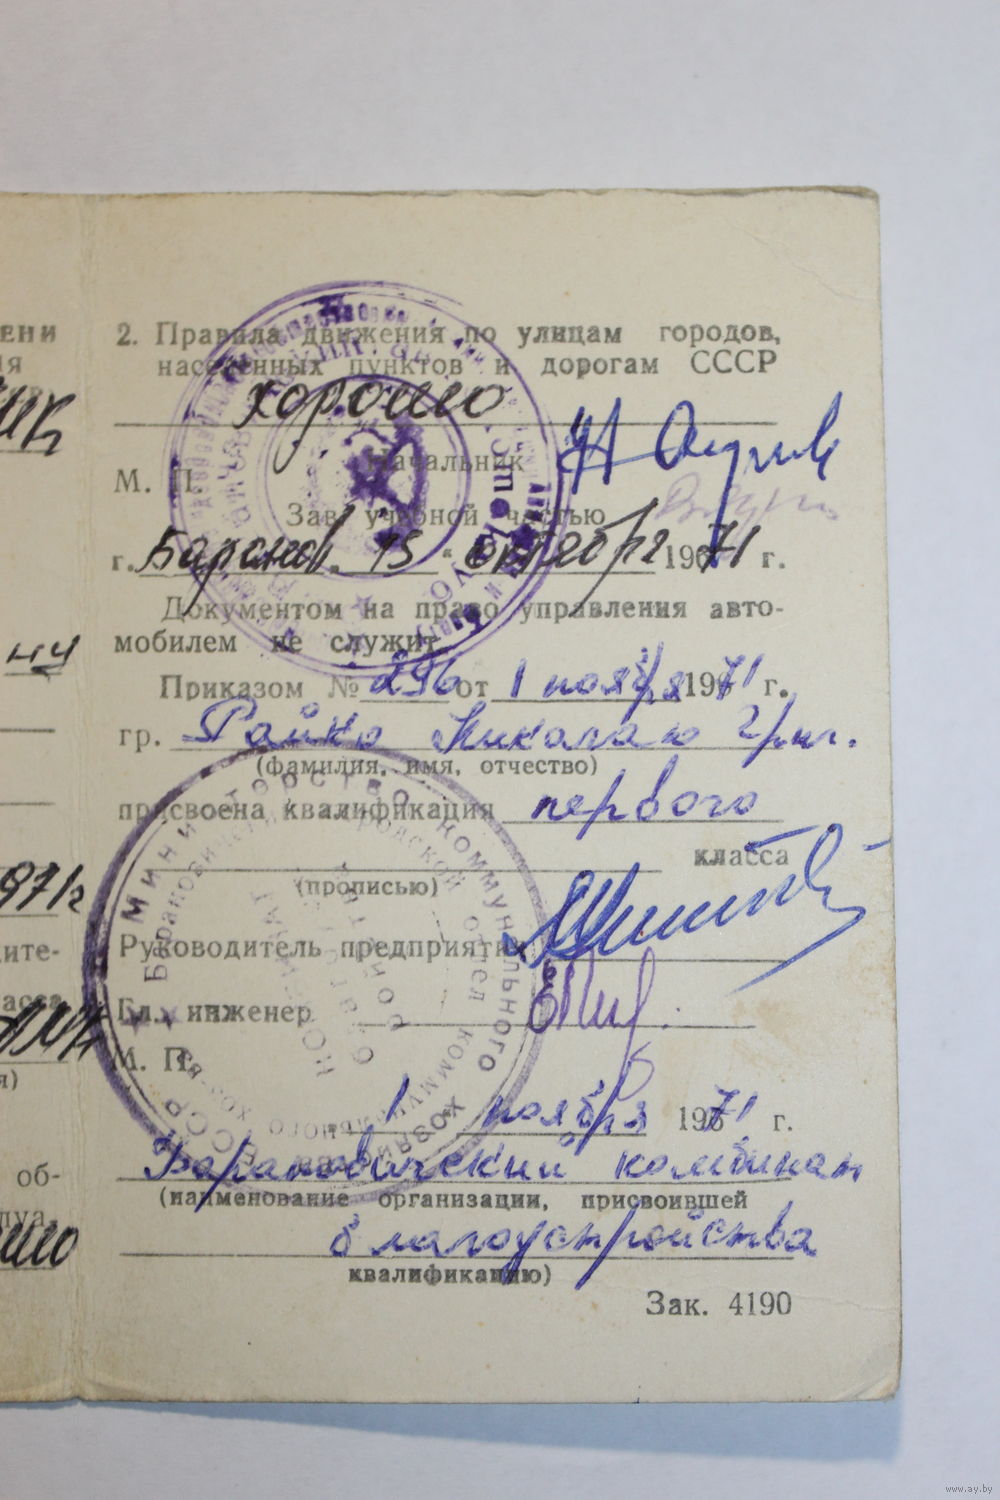 ени
2. Правила движения по улицам городов,
населенных пунктов и дорогам СССР
хорошо
Начальник
М. П.
Зав. учебной частью
г. Баранов. 15 " октября 1971 г.
Документом на право управления авто-
мобилем не служит.
Приказом № 296 от 1 ноября 1971 г.
гр. Райко Николаю Григ.
(фамилия, имя, отчество)
присвоена квалификация первого
класса
(прописью)
971г
ите-
Руководитель предприятия
асса
Гл. инженер
М. П.
1 ноября 1971 г.
Барановичский комбинат
об-
(наименование организации, присвоившей
благоустройства
квалификацию)
Зак. 4190
Министерство коммунального хозяйства БССР
Барановичский городской отдел коммунального хоз-ва
комбинат благоустройства
www.ay.by